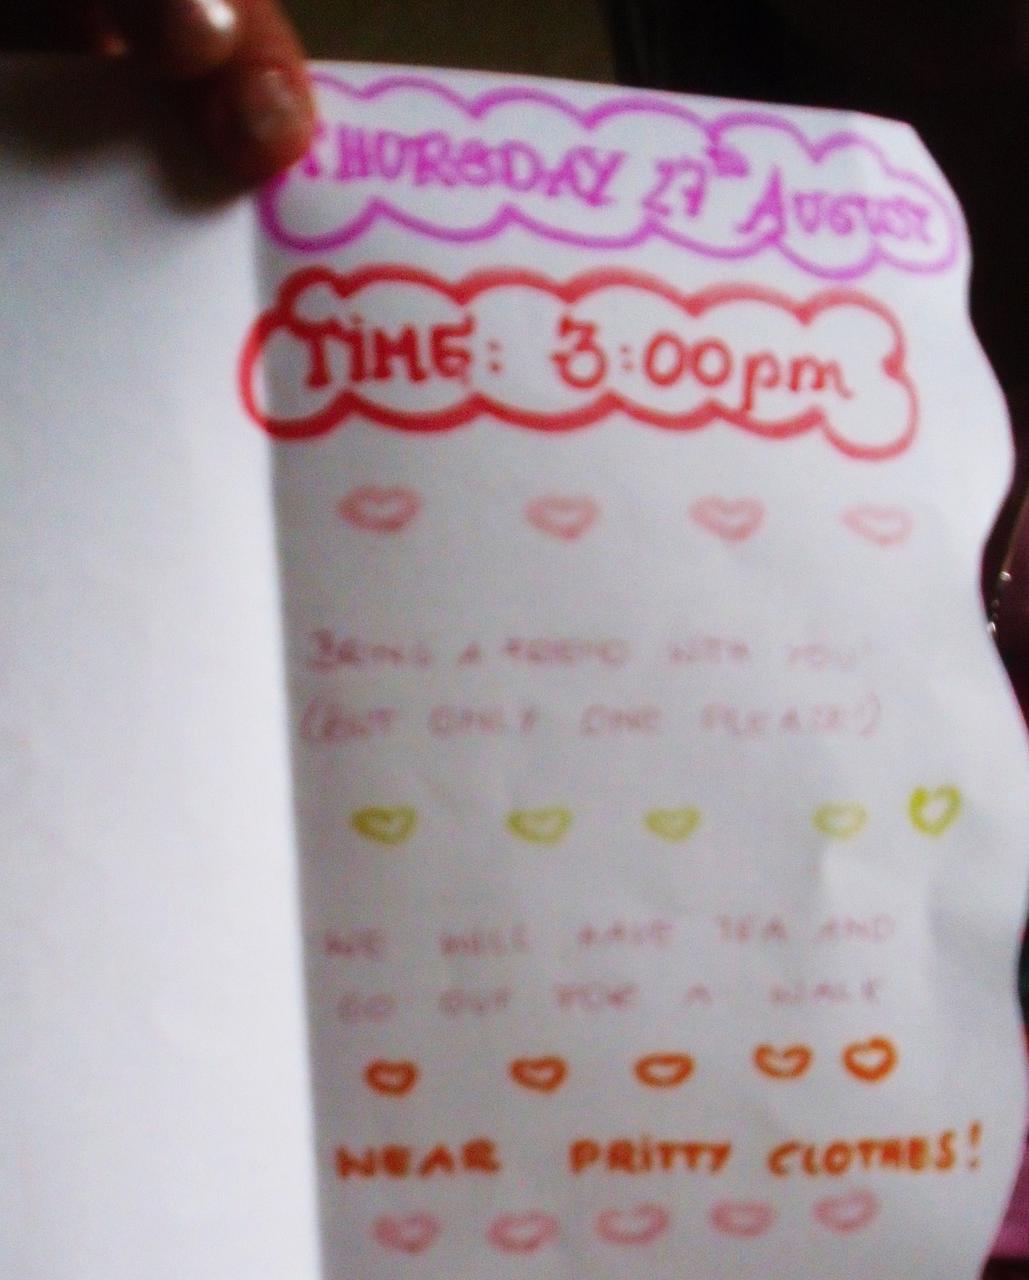 THURSDAY 27th AUGUST
TIME: 3:00pm
BRING A FRIEND WITH YOU!
(BUT ONLY ONE PLEASE!)
WE WILL HAVE TEA AND
GO OUT FOR A WALK
WEAR PRITTY CLOTHES!